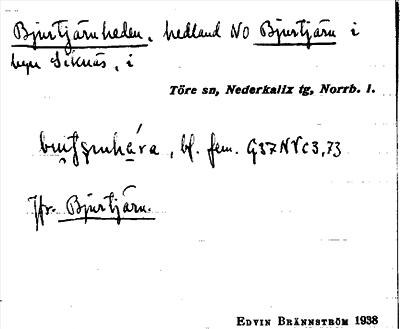 Bjurtjärnheden, hedland NO Bjurtjärn i
byn Siknäs, i
Töre sn, Nederkalix tg, Norrb. l.
bf. fem. G37NVc3,73
Jfr. Bjurtjärn.
EDVIN BRÄNNSTRÖM 1938